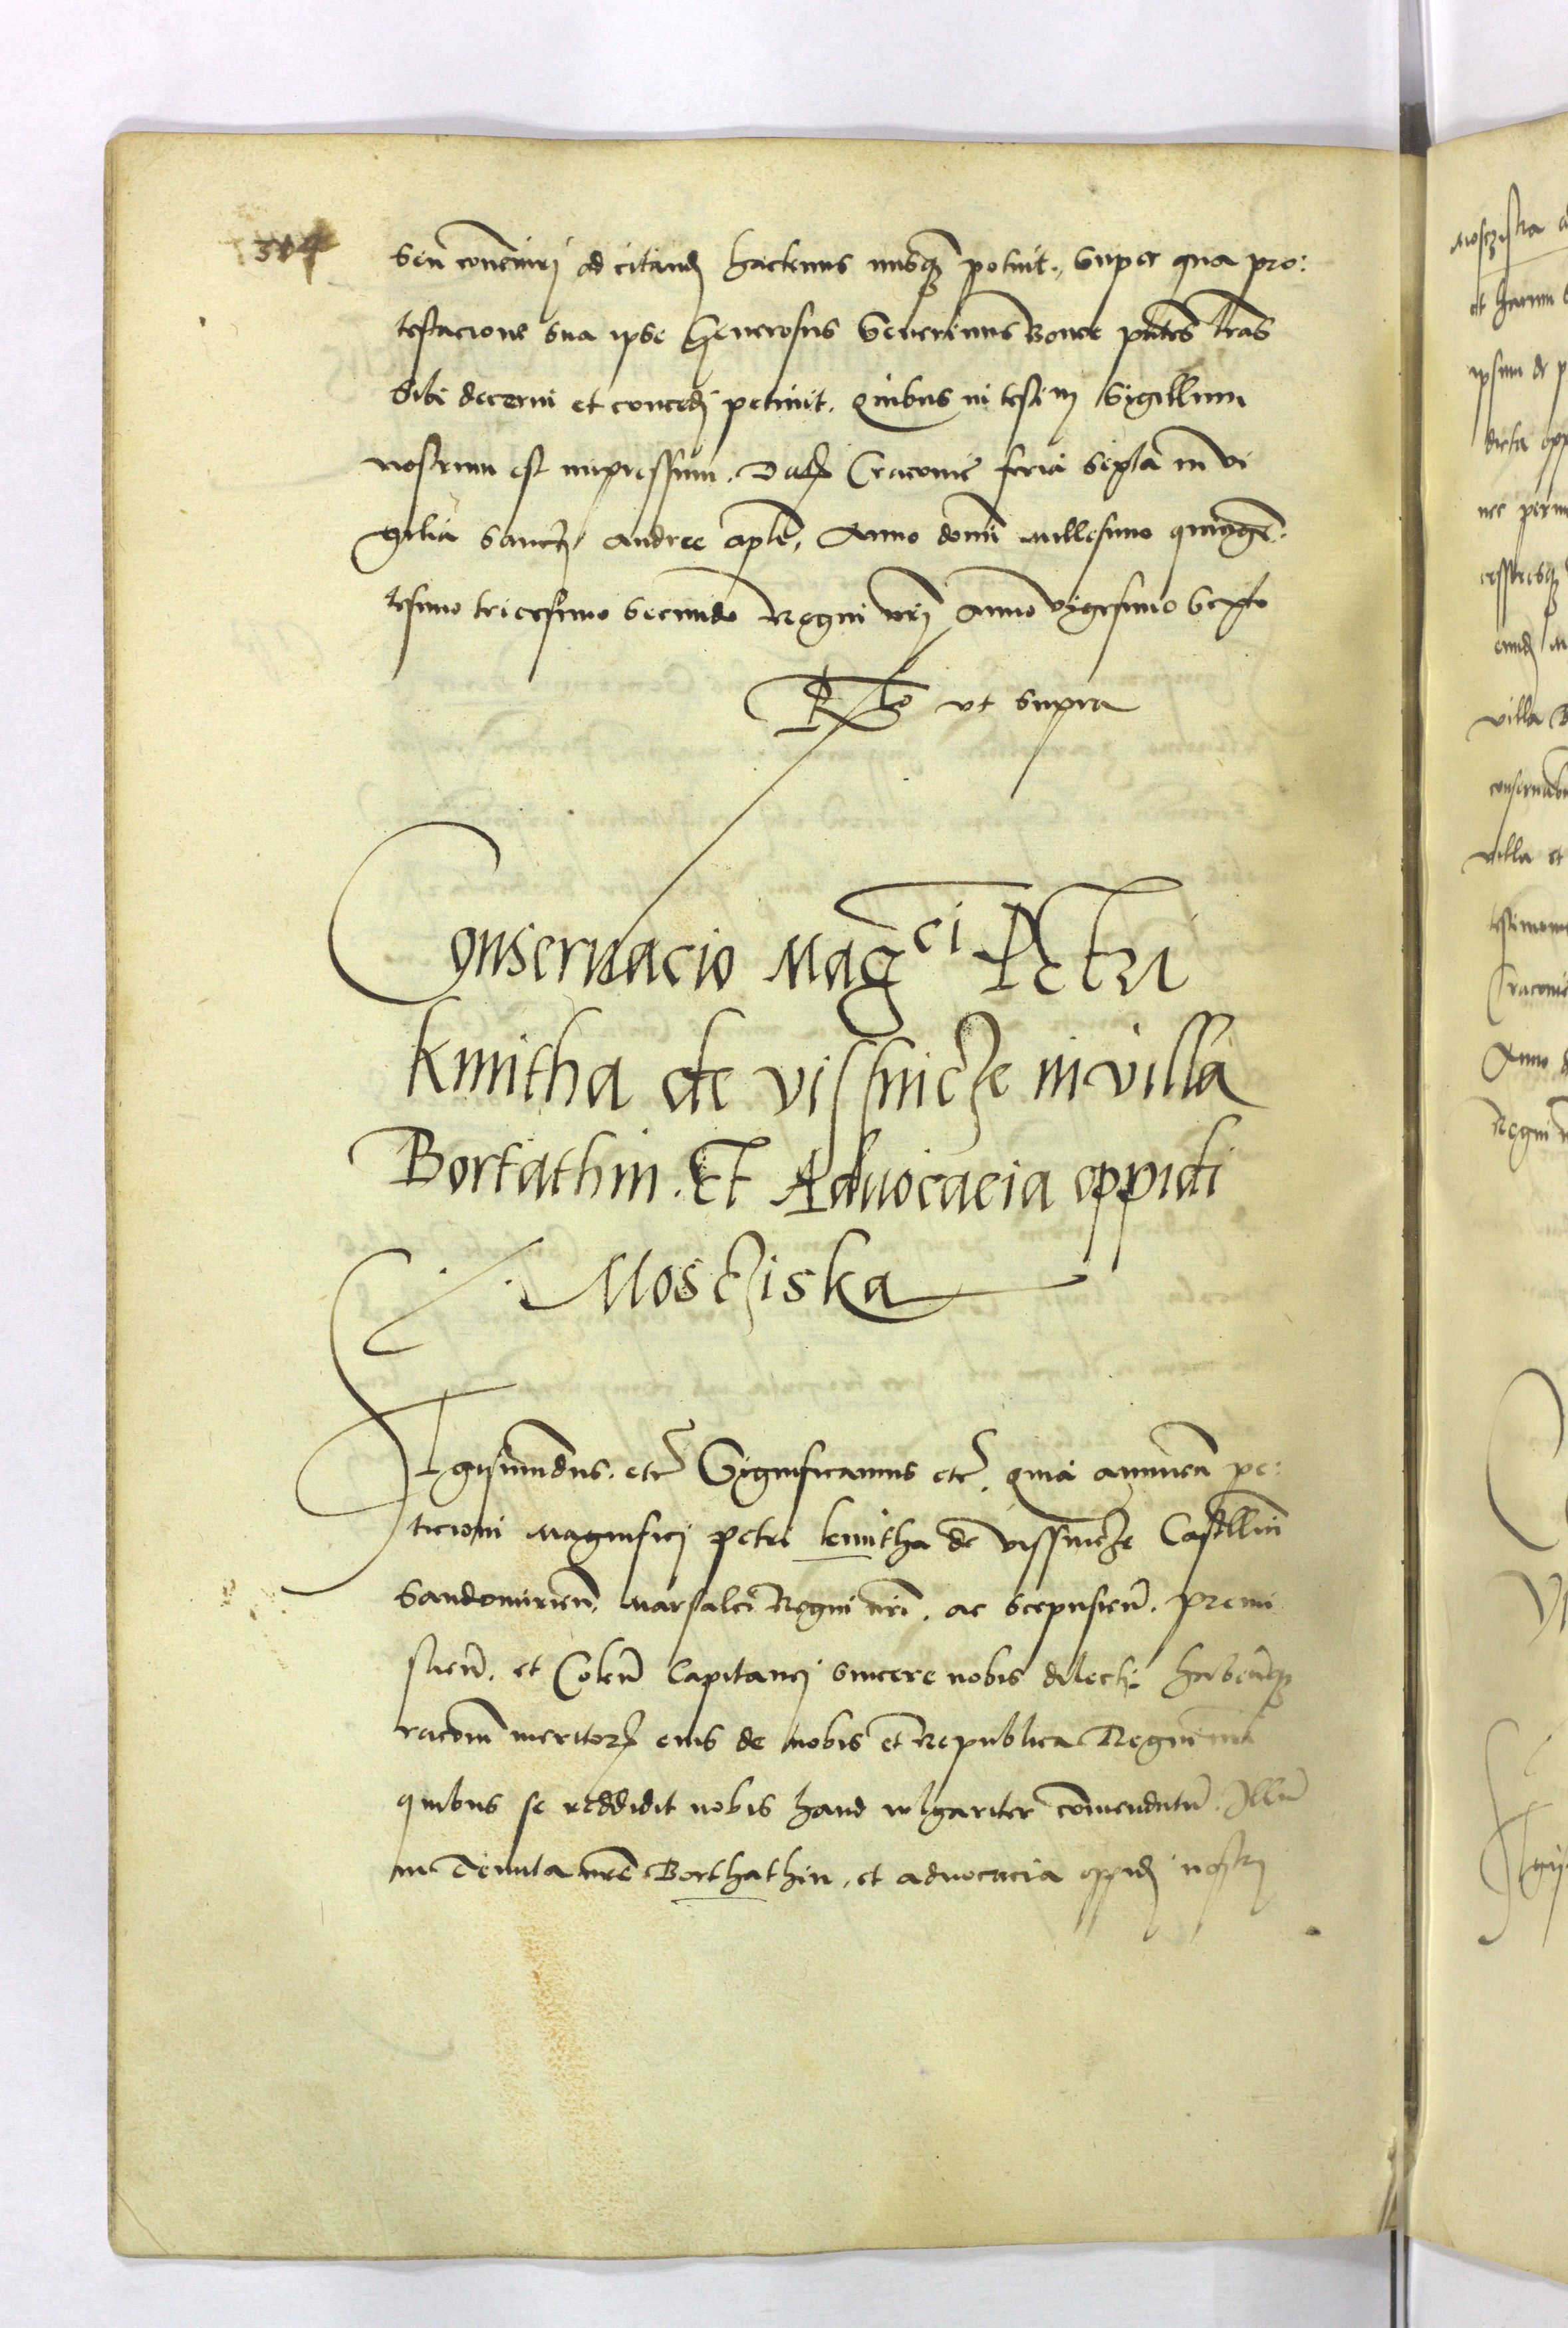 304
seu conveniri ad citand hactenus nusq potuit. Super qua pro:
testacione sua ipse Generosus Severinus Boner pntes lras
sibi decerni et concedj petiuit. Quibus in testim Sigillum
nostrum est impressum. Dat Cracouie feria sexta in vi
gilia Sancti Andree apli, Anno domi millesimo quingen.
tesimo tricesimo secundo Regni nrj Anno vigesimo sexto
Rlo vt supra
Conseruacio Mag^ci Petri
kmitha de vissnicze in villa
Bortathin. Et Aduocacia oppidi
Mosciska
Sigismundus. etc Significamus etc. quia annuen pe:
ticioni Magnificj Petri kmitha de vissnicze Castellani
Sandomirien, Marsalci Regni nri. ac Scepusien. Premi
slien. et Colen Capitanej sincere nobis dilecti habentesq
racionem meritorum eius de nobis et Republica Regni nri
quibus se reddidit nobis haud vlgariter comendatum. Illum
in Tenuta nre Borthathin, et aduocacia oppidj nostrj
Mosciska
ipsum de
dicta opp
nec perm
cessuresq
villa
conserua
villa et
testimoni
Cracouie
Anno d
Regni n